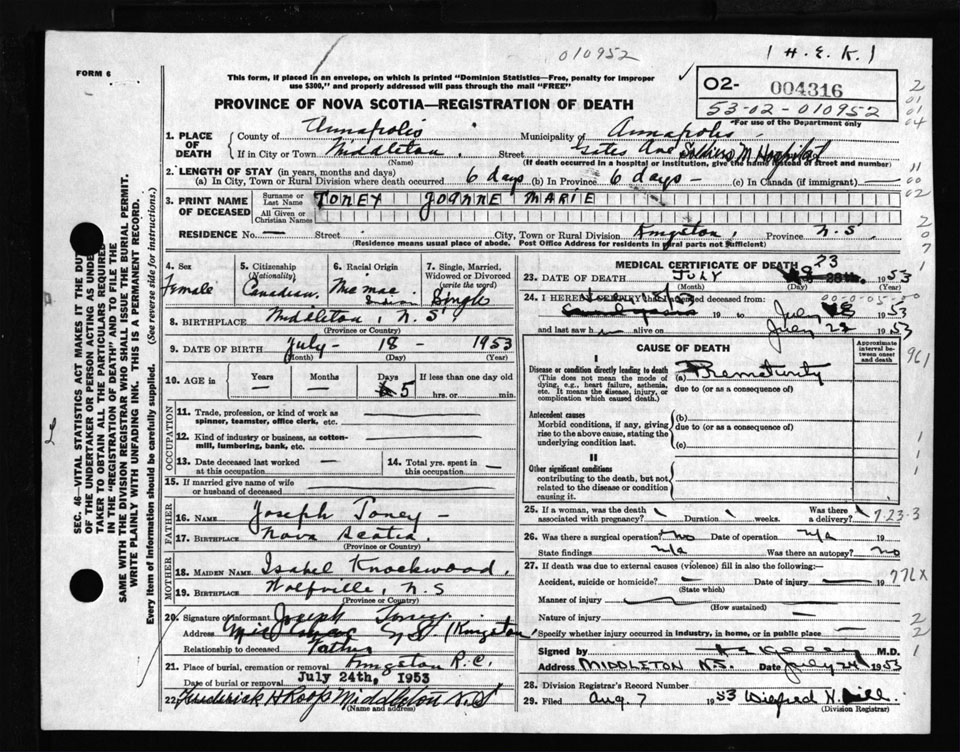 010952
1 H. E. K. 1
FORM 6
This form, if placed in an envelope, on which is printed "Dominion Statistics—Free, penalty for improper
use $300," and properly addressed will pass through the mail "FREE"
02- 004316
53-02-010952
For use of the Department only
PROVINCE OF NOVA SCOTIA—REGISTRATION OF DEATH
1. PLACE OF DEATH
County of Annapolis Municipality of Annapolis
If in City or Town Middleton Street Gates Ave Soldiers M Hospital
(Name) (If death occurred in a hospital or institution, give the name instead of street and number)
2. LENGTH OF STAY (in years, months and days)
(a) In City, Town or Rural Division where death occurred 6 days (b) In Province 6 days – (c) In Canada (if immigrant)
3. PRINT NAME OF DECEASED
Surname or Last Name TONEY JOANNE MARIE
All Given or Christian Names
RESIDENCE No. — Street City, Town or Rural Division Kingston, Province N.S.
(Residence means usual place of abode. Post Office Address for residents in rural parts not sufficient)
4. Sex Female
5. Citizenship (Nationality) Canadian.
6. Racial Origin Mic mac Indian
7. Single, Married, Widowed or Divorced (write the word) Single
8. BIRTHPLACE Middleton, N.S
(Province or Country)
9. DATE OF BIRTH July – 18 – 1953
(Month) (Day) (Year)
10. AGE in Years — Months — Days 5 If less than one day old hrs. or min.
OCCUPATION
11. Trade, profession, or kind of work as spinner, teamster, office clerk, etc.
12. Kind of industry or business, as cotton-mill, lumbering, bank, etc.
13. Date deceased last worked at this occupation —
14. Total yrs. spent in this occupation —
15. If married give name of wife or husband of deceased
FATHER
16. NAME Joseph Toney –
17. BIRTHPLACE Nova Scotia.
(Province or Country)
MOTHER
18. MAIDEN NAME Isabel Knockwood,
19. BIRTHPLACE Wolfville, N.S
(Province or Country)
20. Signature of informant Joseph Toney
Address N.S. (Kingston)
Relationship to deceased Father
21. Place of burial, cremation or removal Kingston R.C.
Date of burial or removal July 24th, 1953
22. Frederick H Roop Middleton N.S
(Name and address)
MEDICAL CERTIFICATE OF DEATH
23. DATE OF DEATH JULY 23 1953
(Month) (Day) (Year)
24. I HEREBY CERTIFY that I attended deceased from:
19 to July 1953
and last saw h alive on July 22
CAUSE OF DEATH
Approximate interval between onset and death
I
Disease or condition directly leading to death
(This does not mean the mode of dying, e.g., heart failure, asthenia, etc. It means the disease, injury, or complication which caused death.)
(a) Prematurity
due to (or as a consequence of)
Antecedent causes
Morbid conditions, if any, giving rise to the above cause, stating the underlying condition last.
(b)
due to (or as a consequence of)
(c)
II
Other significant conditions
contributing to the death, but not related to the disease or condition causing it.
25. If a woman, was the death associated with pregnancy? Duration weeks. Was there a delivery?
26. Was there a surgical operation? no Date of operation n/a 19
State findings n/a Was there an autopsy? no
27. If death was due to external causes (violence) fill in also the following:—
Accident, suicide or homicide? — Date of injury 19
(State which)
Manner of injury
(How sustained)
Nature of injury
Specify whether injury occurred in industry, in home, or in public place
Signed by M.D.
Address MIDDLETON N.S. Date July 24 1953
28. Division Registrar's Record Number
29. Filed Aug. 7 1953
(Division Registrar)
961
7-23-3
776X
SEC. 46—VITAL STATISTICS ACT MAKES IT THE DUTY
OF THE UNDERTAKER OR PERSON ACTING AS UNDER-
TAKER TO OBTAIN ALL THE PARTICULARS REQUIRED
IN THE "REGISTRATION OF DEATH" AND TO FILE THE
SAME WITH THE DIVISION REGISTRAR WHO SHALL ISSUE THE BURIAL PERMIT.
WRITE PLAINLY WITH UNFADING INK. THIS IS A PERMANENT RECORD.
Every item of information should be carefully supplied. (See reverse side for instructions.)